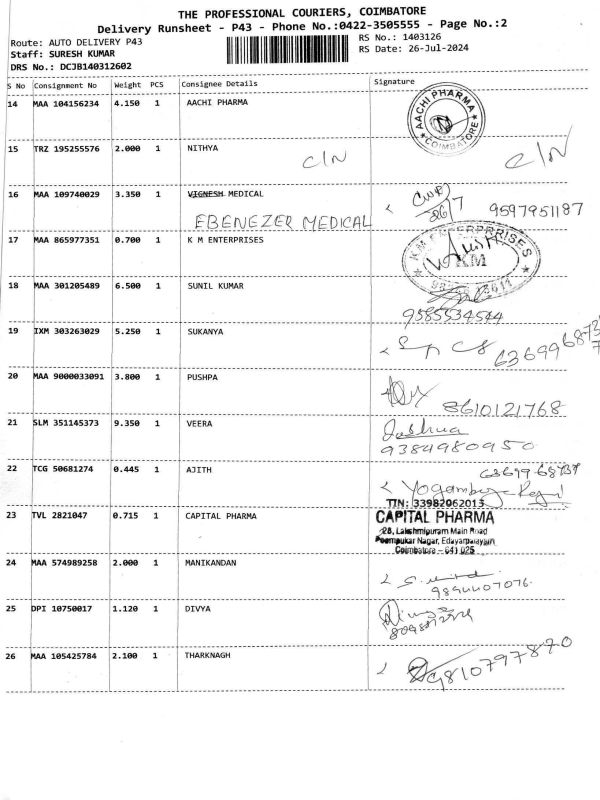 THE PROFESSIONAL COURIERS, COIMBATORE
Delivery Runsheet - P43 - Phone No.:0422-3505555 - Page No.:2
Route: AUTO DELIVERY P43
RS No.: 1403126
Staff: SURESH KUMAR
RS Date: 26-Jul-2024
DRS No.: DCJB140312602
S No Consignment No Weight PCS Consignee Details Signature
14 MAA 104156234 4.150 1 AACHI PHARMA
AACHI PHARMA
COIMBATORE
15 TRZ 195255576 2.000 1 NITHYA
C/N C/N
16 MAA 109740029 3.350 1 VIGNESH MEDICAL
26/7 9597951187
EBENEZER MEDICAL
17 MAA 865977351 0.700 1 K M ENTERPRISES
KM ENTERPRRISES
KM
18 MAA 301205489 6.500 1 SUNIL KUMAR
9585534544
19 IXM 303263029 5.250 1 SUKANYA
20 MAA 9000033091 3.800 1 PUSHPA
8610121768
21 SLM 351145373 9.350 1 VEERA
Joshua
9384980950
22 TCG 50681274 0.445 1 AJITH
TIN: 33982062013
23 TVL 2821047 0.715 1 CAPITAL PHARMA
CAPITAL PHARMA
28, Lakshmipuram Main Road
Poompukar Nagar, Edayarpalayam
Coimbatore - 641 025
24 MAA 574989258 2.000 1 MANIKANDAN
9894407076
25 DPI 10750017 1.120 1 DIVYA
26 MAA 105425784 2.100 1 THARKNAGH
9810797870